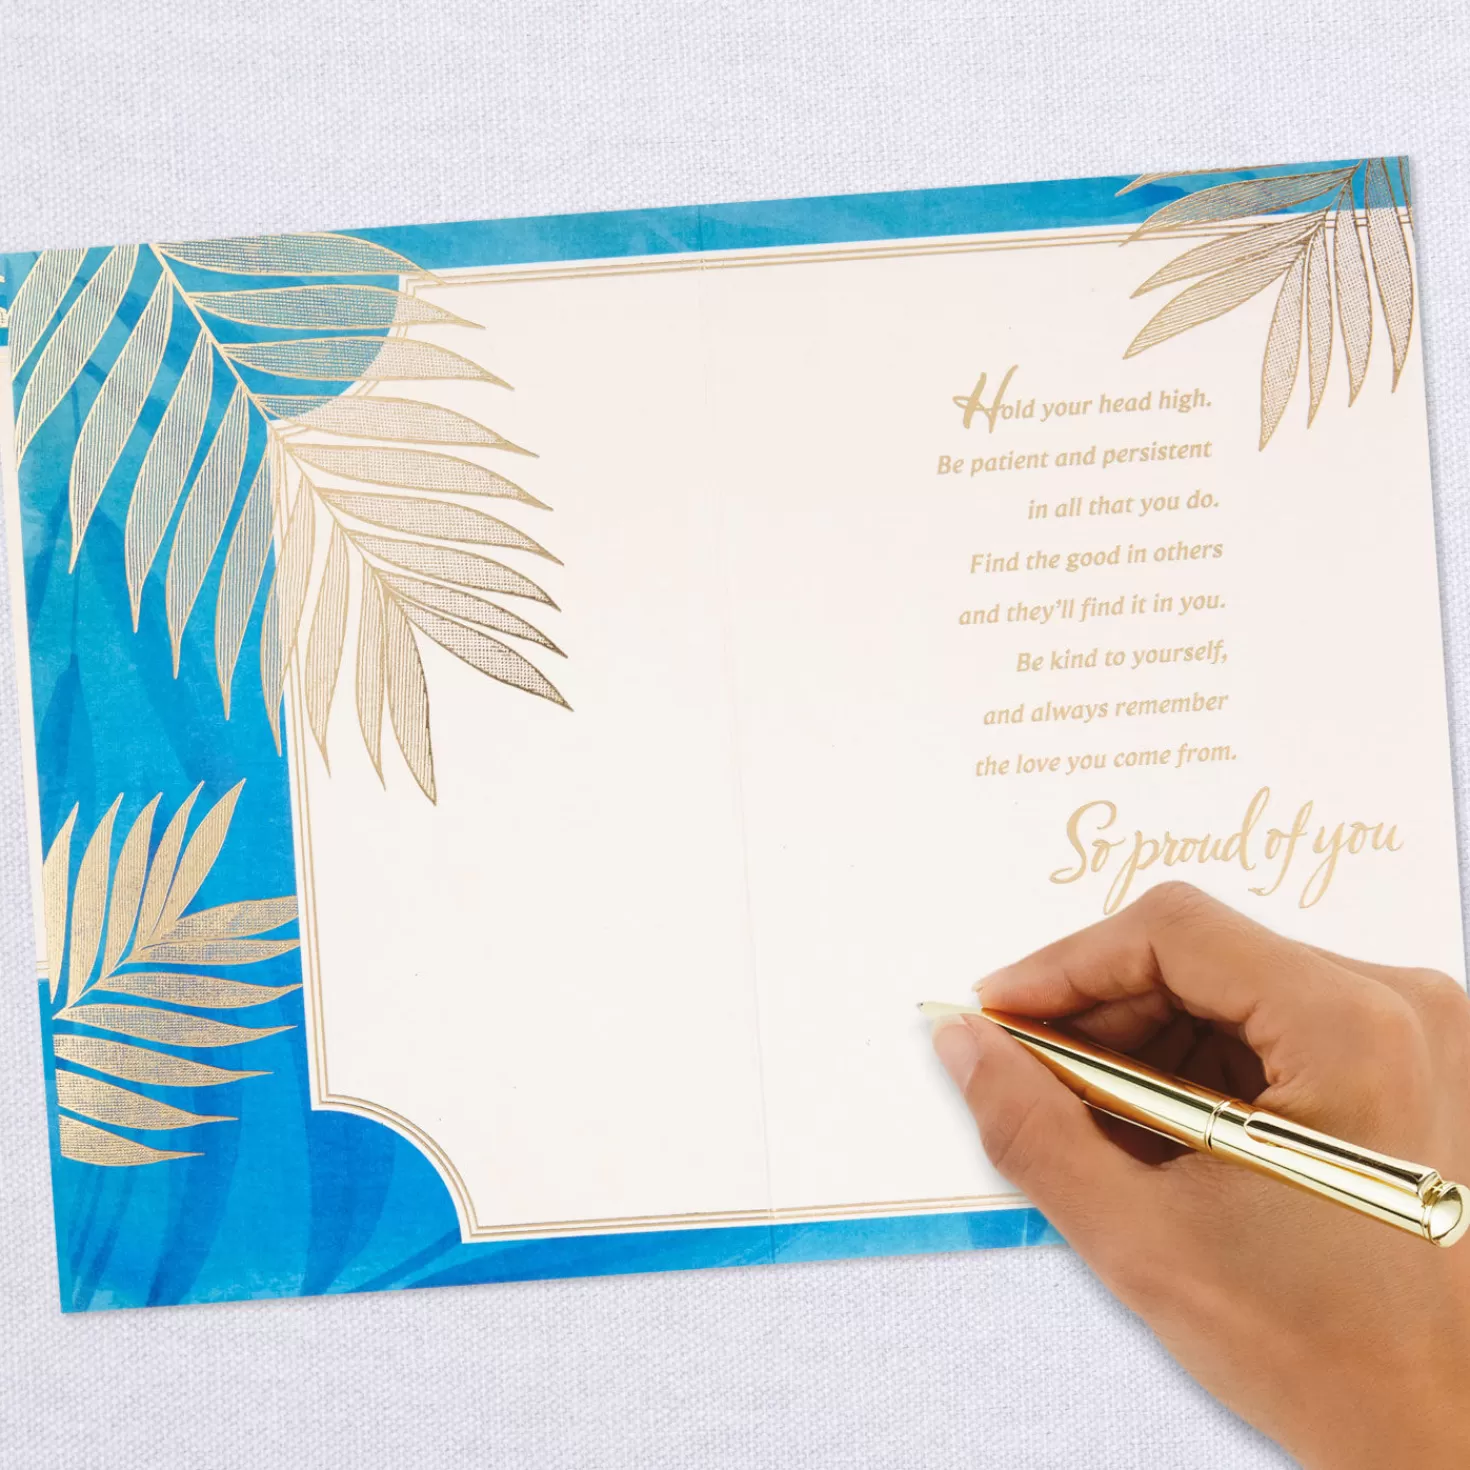 Hold your head high.
Be patient and persistent
in all that you do.
Find the good in others
and they'll find it in you.
Be kind to yourself,
and always remember
the love you come from.
So proud of you